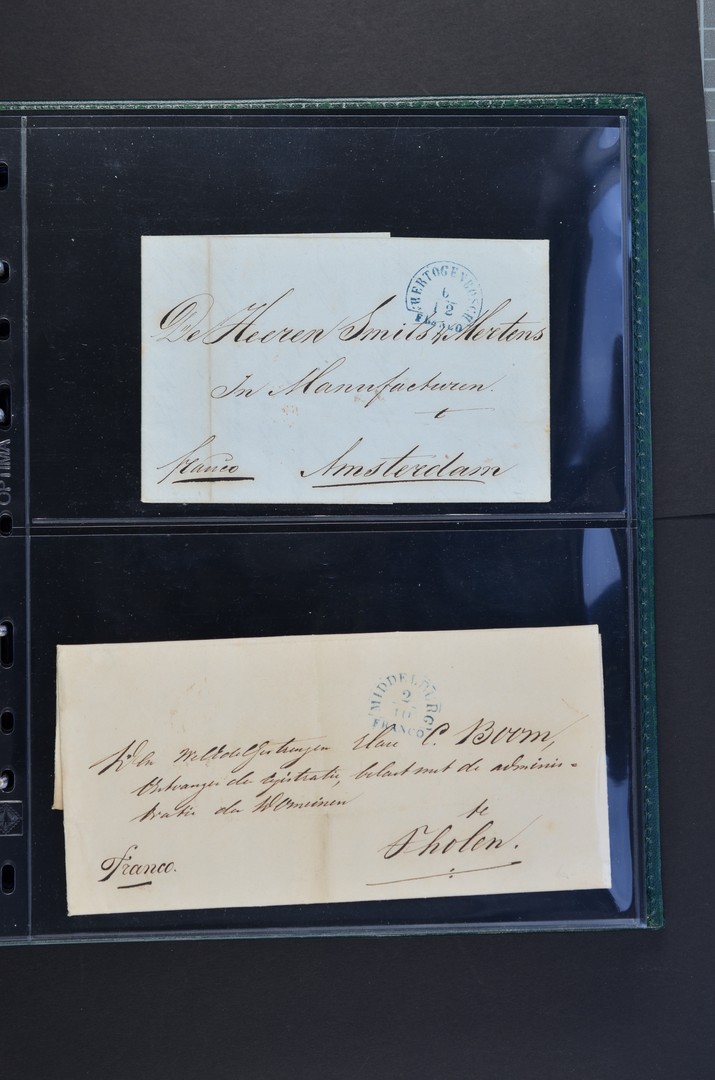 'S HERTOGENBOSCH
6
12
FRANCO
De Heeren Smits & Mertens
In Manufacturen.
te
franco Amsterdam
OPTIMA
MIDDELBURG
2
10
FRANCO
Den Weledelgestrengen Heer C. Boom,
Ontvanger der registratie, belast met de adminis=
tratie der Domeinen
te
Tholen.
Franco.